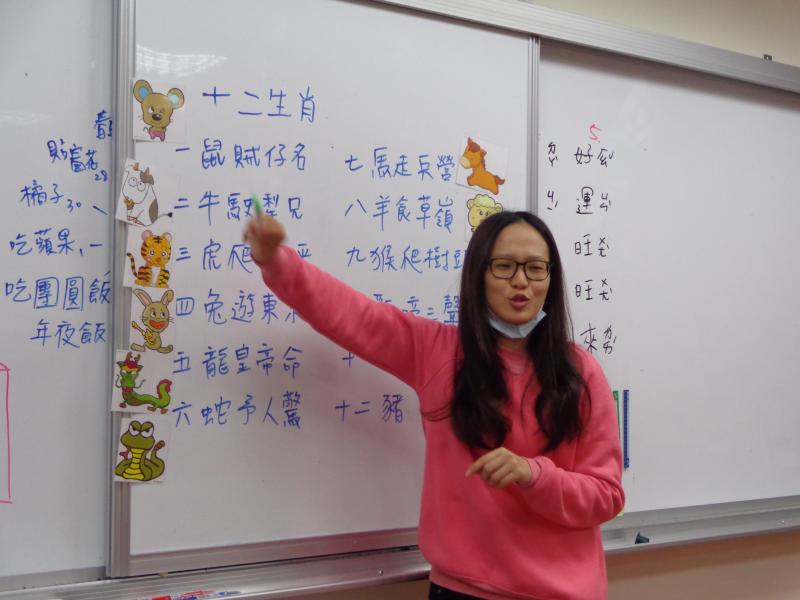 貼
28
橘子 30
吃蘋果、一
吃團圓飯
年夜飯
十二生肖
一鼠賊仔名
二牛駛犁兄
三虎爬
四兔遊東
五龍皇帝命
六蛇予人驚
七馬走兵營
八羊食草嶺
九猴爬樹頭
啼三聲
十
十二豬
5
好
運ㄓ
旺ㄤ
旺ㄤ
來ㄌㄞ